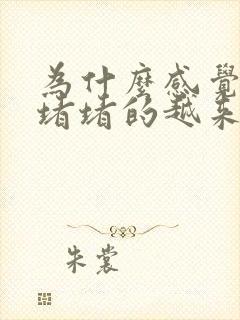 為什麼感覺
堵堵的越來
朱裳